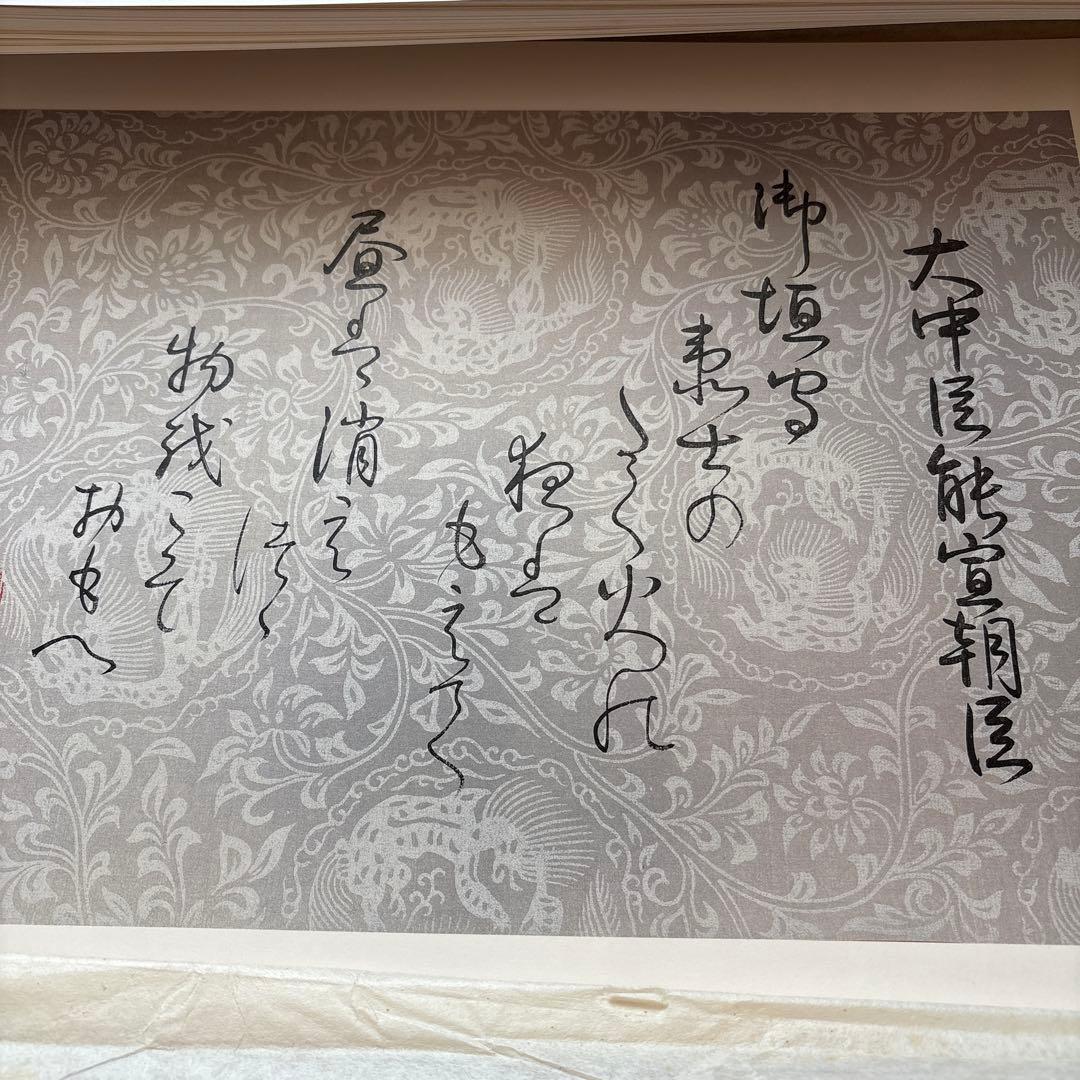 大中臣能宣朝臣
御垣守
衛士の
たく火の
夜は
もえて
昼は消え
つゝ
物をこそ
おもへ